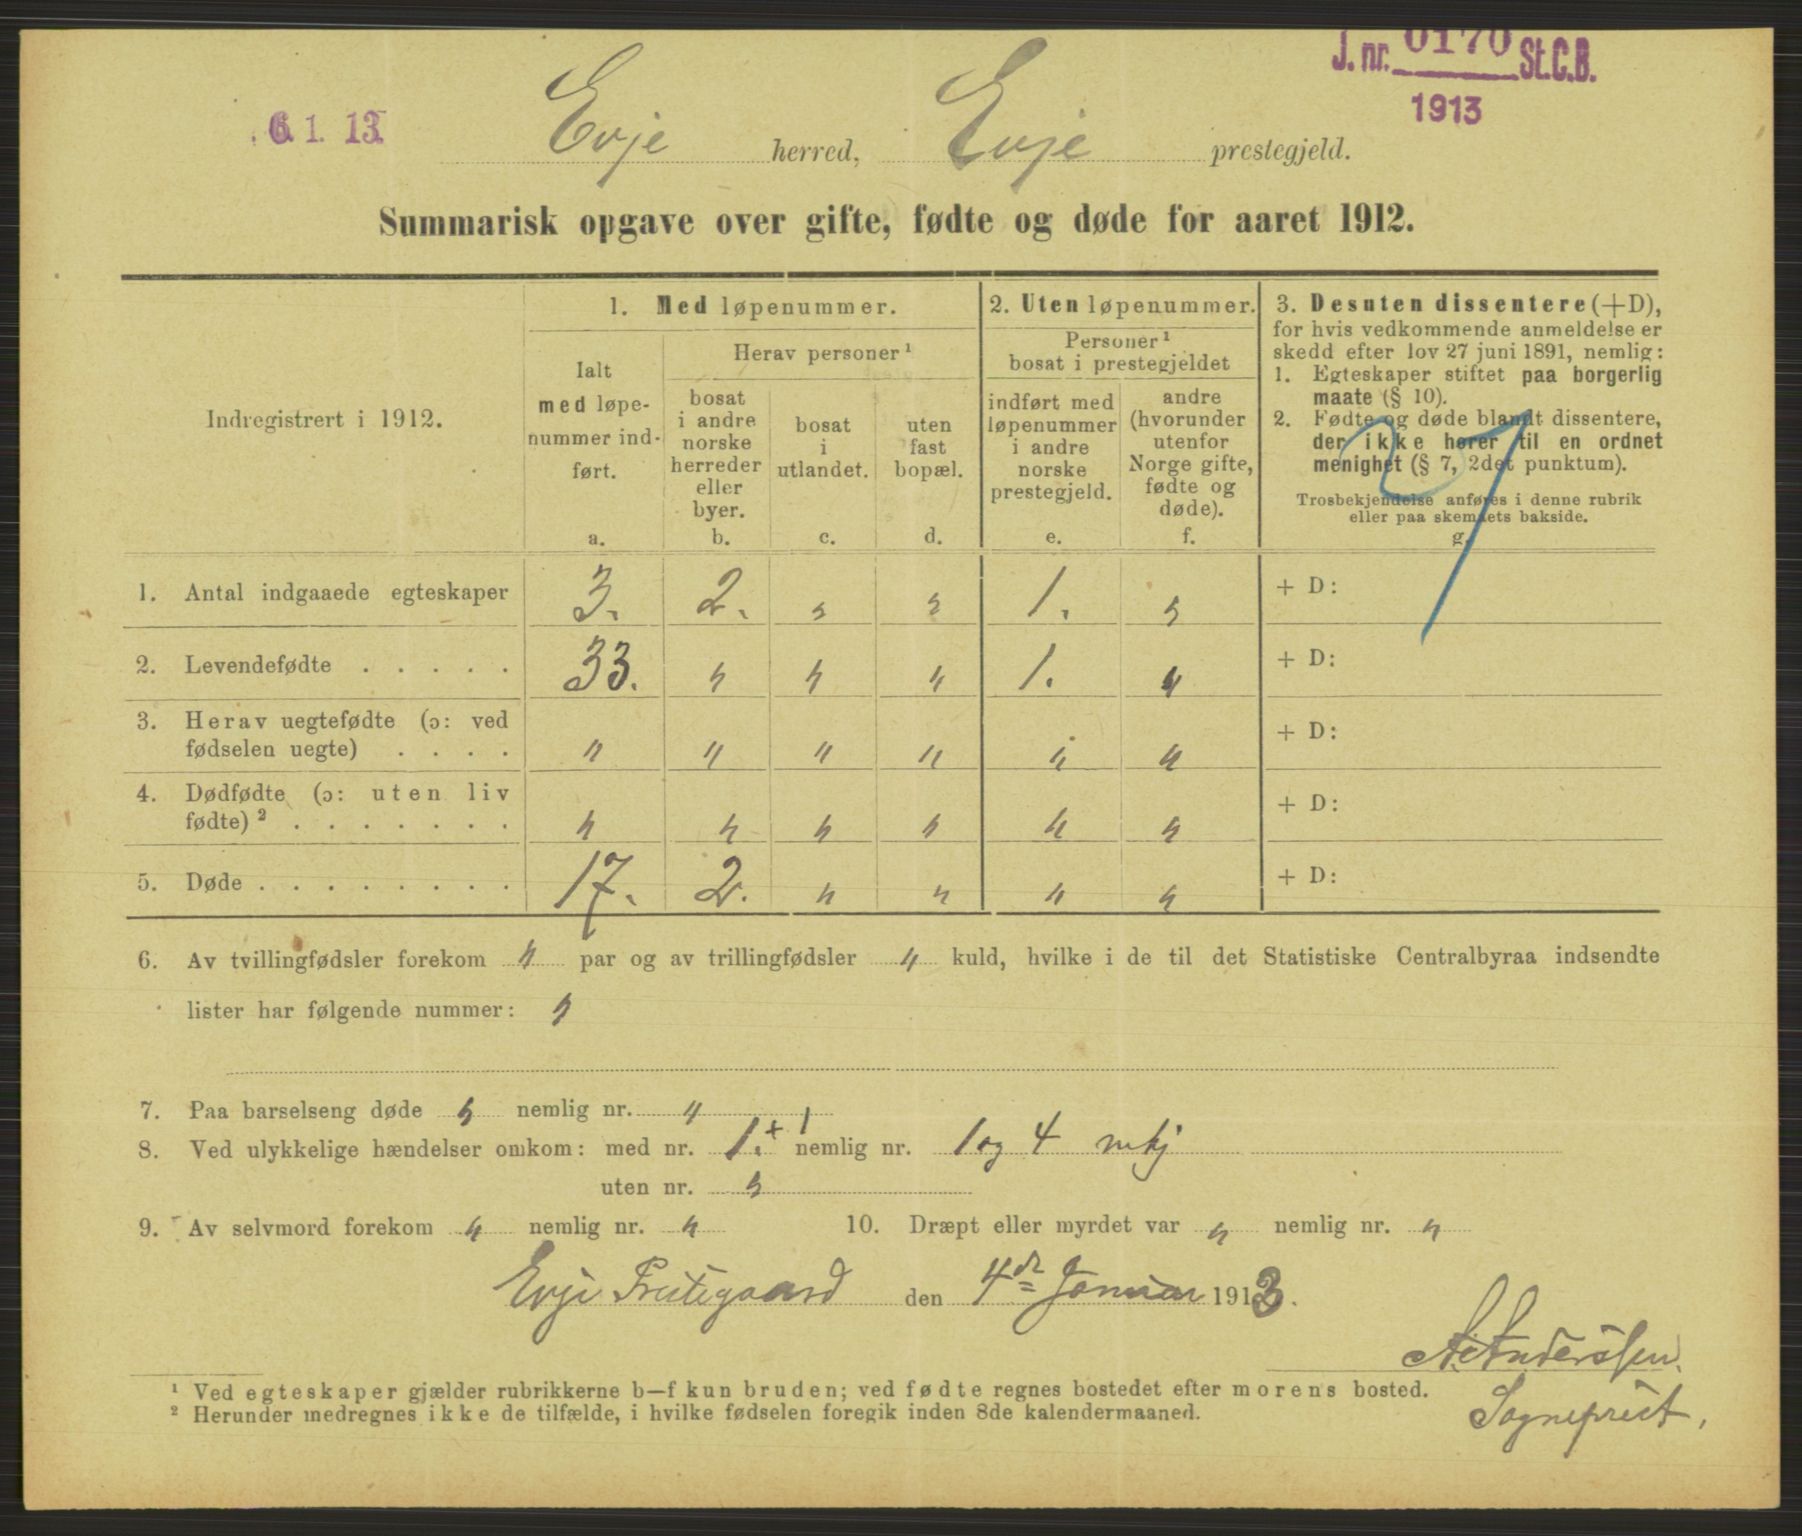 J. nr. 0170 St.C.B.
1913
6 1. 13
Evje herred, Evje prestegjeld.
Summarisk opgave over gifte, fødte og døde for aaret 1912.
Indregistrert i 1912.
1. Med løpenummer.
Ialt
med løpe-
nummer ind-
ført.
a.
Herav personer ¹
bosat
i andre
norske
herreder
eller
byer.
b.
bosat
i
utlandet.
c.
uten
fast
bopæl.
d.
2. Uten løpenummer.
Personer ¹
bosat i prestegjeldet
indført med
løpenummer
i andre
norske
prestegjeld.
e.
andre
(hvorunder
utenfor
Norge gifte,
fødte og
døde).
f.
3. Desuten dissentere (+D),
for hvis vedkommende anmeldelse er
skedd efter lov 27 juni 1891, nemlig:
1. Egteskaper stiftet paa borgerlig
maate (§ 10).
2. Fødte og døde blandt dissentere,
der ikke hører til en ordnet
menighet (§ 7, 2det punktum).
Trosbekjendelse anføres i denne rubrik
eller paa skemaets bakside.
g.
1. Antal indgaaede egteskaper 3. 2. " " 1. " + D:
2. Levendefødte . . . . . 33. " " " 1. " + D:
3. Herav uegtefødte (ɔ: ved
fødselen uegte) . . . . " " " " " " + D:
4. Dødfødte (ɔ: uten liv
fødte) ² . . . . . . . " " " " " " + D:
5. Døde . . . . . . . . 17. 2. " " " " + D:
6. Av tvillingfødsler forekom " par og av trillingfødsler " kuld, hvilke i de til det Statistiske Centralbyraa indsendte
lister har følgende nummer: "
7. Paa barselseng døde " nemlig nr. "
8. Ved ulykkelige hændelser omkom: med nr. 1. + 1 nemlig nr. 1 og 4 mkj
uten nr. "
9. Av selvmord forekom " nemlig nr. " 10. Dræpt eller myrdet var " nemlig nr. "
Evje Prestegaard den 4de Januar 1913.
A. Anderssen.
Sogneprest.
¹ Ved egteskaper gjælder rubrikkerne b—f kun bruden; ved fødte regnes bostedet efter morens bosted.
² Herunder medregnes ikke de tilfælde, i hvilke fødselen foregik inden 8de kalendermaaned.